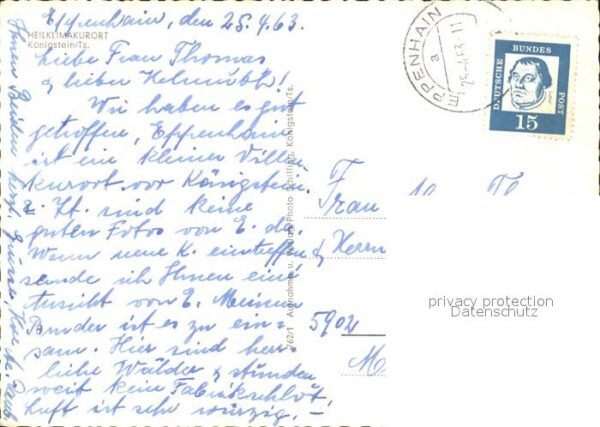 Eppenhain, den 25.4.63.
HEILKLIMAKURORT
Königstein/Ts.
Liebe Frau Thomas
& lieber Helmuth!
Wir haben es gut
getroffen, Eppenhain
ist ein kleiner Villen
kurort vor Königstein.
z. Zt. sind keine
guten Fotos von E. da.
Wenn neue K. eintreffen
sende ich Ihnen eine
Ansicht von E. Meinem
Bruder ist es zu ein-
sam. Hier sind herr-
liche Wälder & stunden
weit kein Fabrikschlot,
Luft ist sehr würzig. –
Ihnen Beiden herzl. Grüsse
2/62/1 Aufnahme u. Photo Königstein/Ts.
EPPENHAIN
a
25.4.63-11
DEUTSCHE
BUNDES
POST
15
Frau
& Herrn
5902
privacy protection
Datenschutz